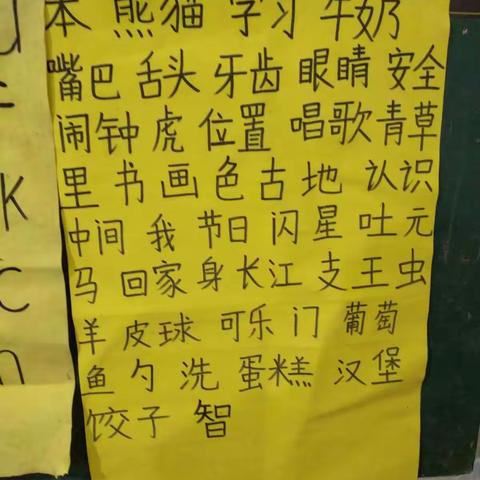 本 熊猫 学习 牛奶
嘴巴 舌头 牙齿 眼睛 安全
闹钟 虎 位置 唱歌 青草
里 书 画 色 古 地 认识
中间 我 节日 闪 星 吐 元
马 回家 身 长江 支 王 虫
羊 皮球 可乐 门 葡萄
鱼 勺 洗 蛋糕 汉堡
饺子 智
K
C